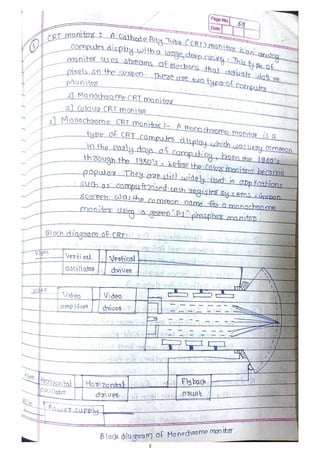 Page No. 69
Date
5) CRT monitor : A Cathode Ray Tube (CRT) monitor is an analog
computer display with a large, deep casing. This type of
monitor uses streams of electrons that activate dots or
pixels on the screen. There are two types of computer
Monitor
1] Monochrome CRT monitor
2] Colour CRT monitor
1] Monochrome CRT monitor :- A monochrome monitor is a
type of CRT computer display which was very common
in the early days of computing, from the 1960's
through the 1980's, before the color monitors become
popular. They are still widely used in applications
such as computerised cash register systems, Green
screen was the common name for a monochrome
monitor using a green "P1" phosphor monitor
Block diagram of CRT:
Vertical oscillator
Vertical driver
Video
Video amplifier
Video driver
Horizontal oscillator
Horizontal driver
Flyback
Power supply
Block diagram of Monochrome monitor